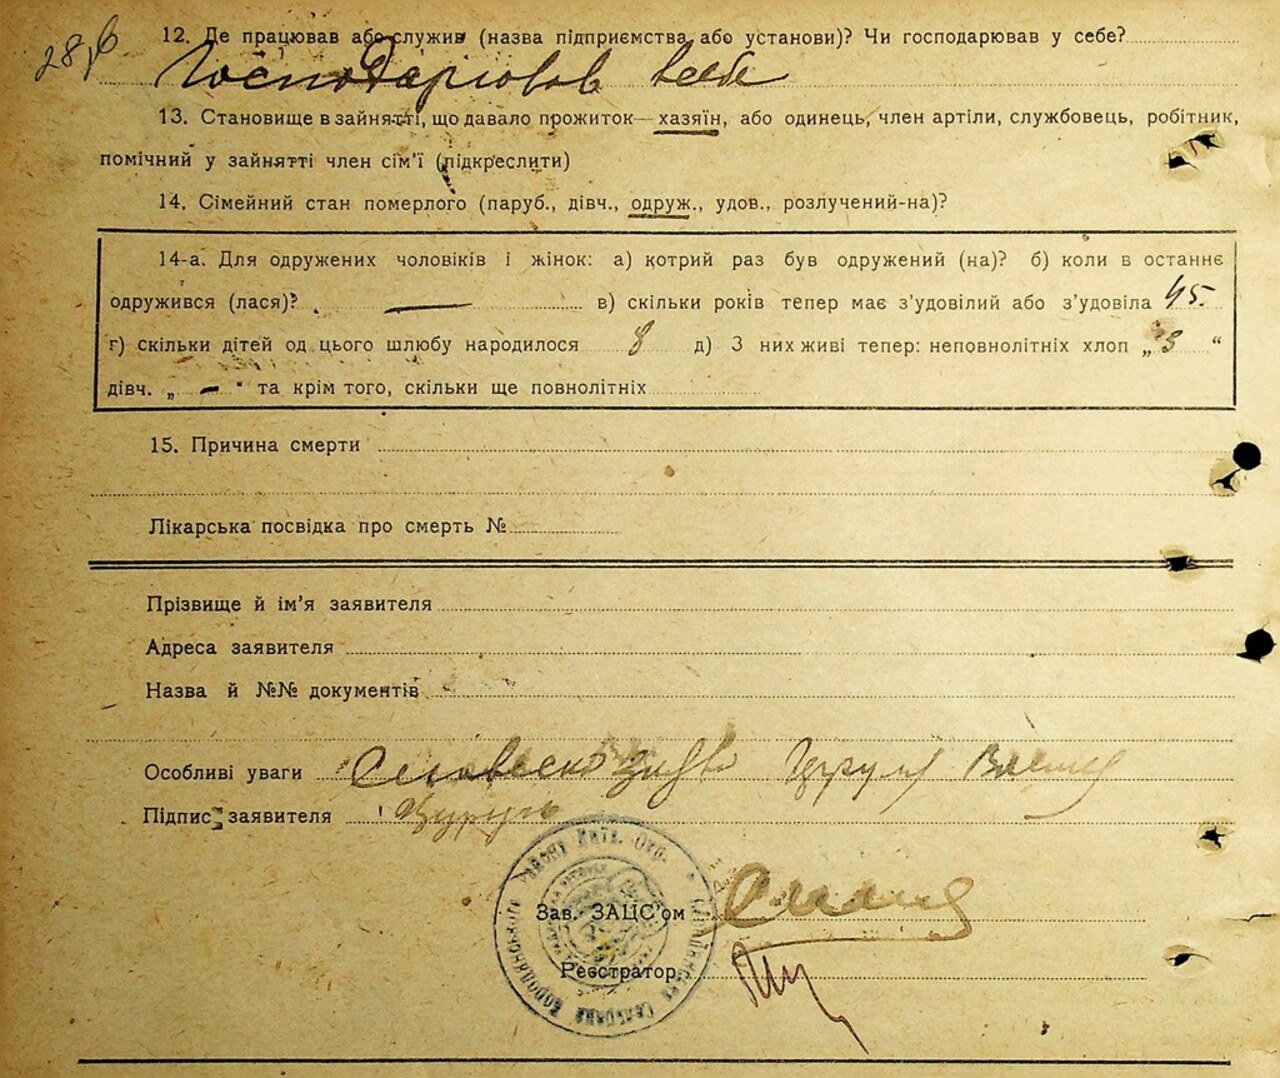 12. Де працював або служив (назва підприємства або установи)? Чи господарював у себе?
Господарював в себе
13. Становище в зайнятті, що давало прожиток—хазяїн, або одинець, член артіли, службовець, робітник,
помічний у зайнятті член сім'ї (підкреслити)
14. Сімейний стан померлого (паруб., дівч., одруж., удов., розлучений-на)?
14-а. Для одружених чоловіків і жінок: а) котрий раз був одружений (на)? б) коли в останнє
одружився (лася)? — в) скільки років тепер має з'удовілий або з'удовіла 45.
г) скільки дітей од цього шлюбу народилося 8 д) З них живі тепер: неповнолітніх хлоп „3“
дівч. „—“ та крім того, скільки ще повнолітніх
15. Причина смерти
Лікарська посвідка про смерть №
Прізвище й ім'я заявителя
Адреса заявителя
Назва й №№ документів
Особливі уваги
Підпис заявителя
Зав. ЗАЦС'ом
Реєстратор